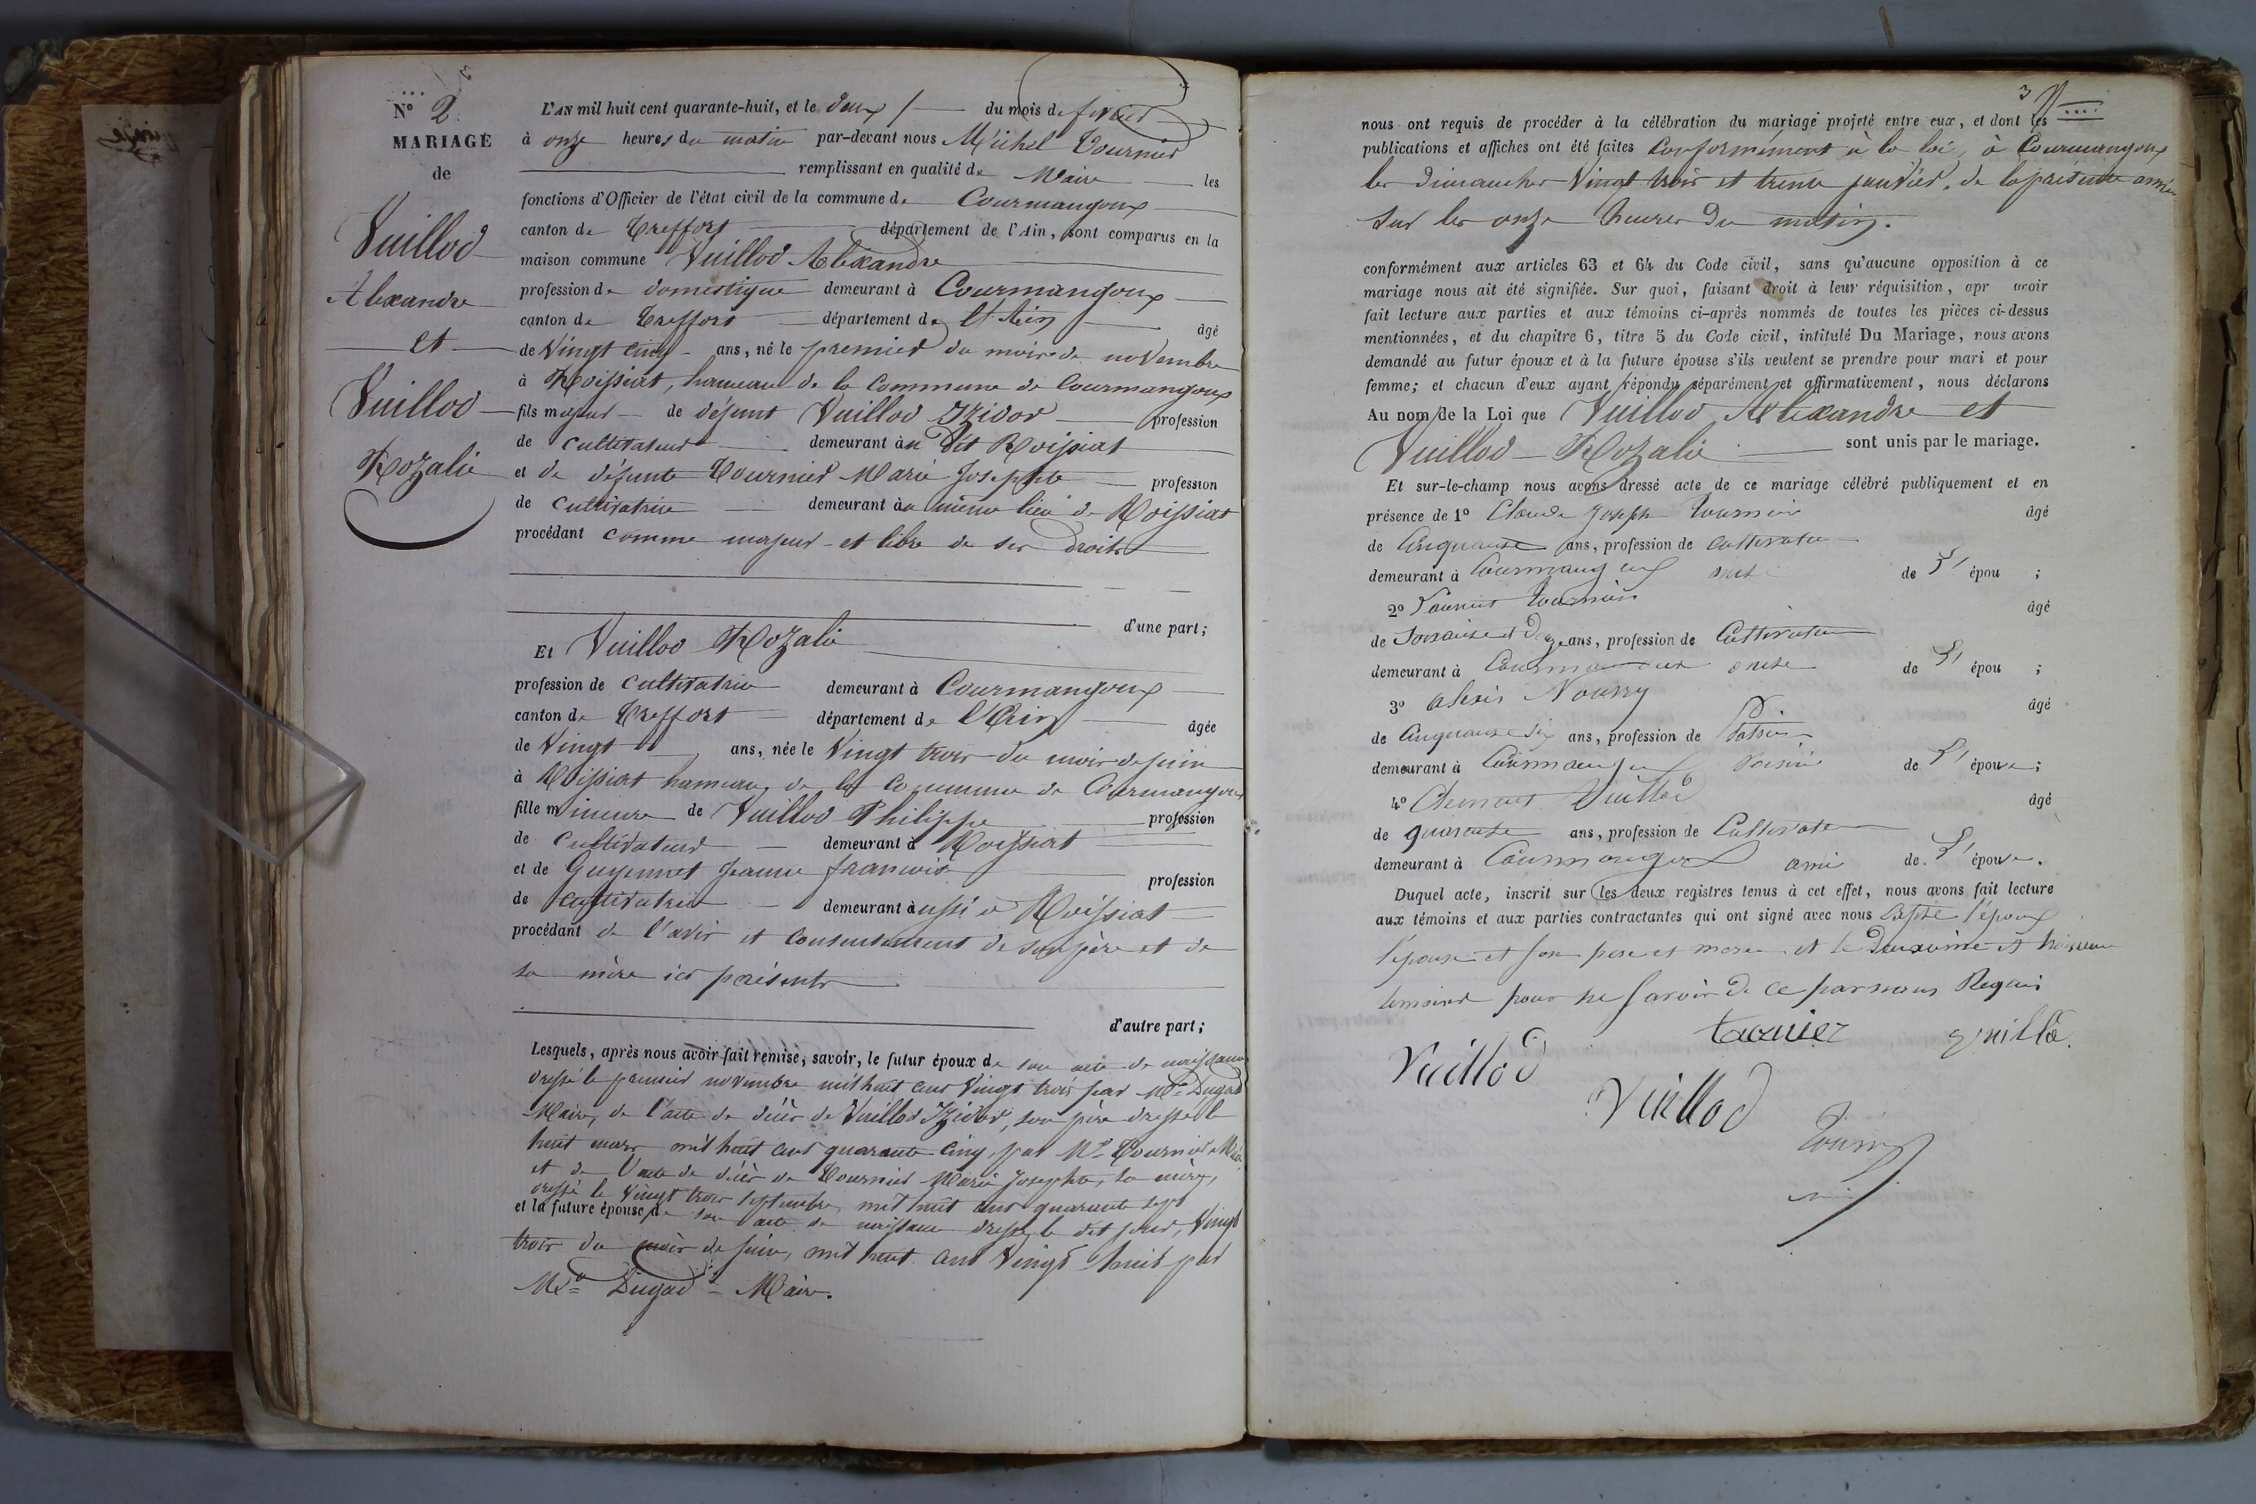 N° 2
MARIAGE
de
Vuillod
Alexandre
et
Vuillod
Rozalie
L'AN mil huit cent quarante-huit, et le deux du mois de fevrier
à onze heures du matin par-devant nous Michel Tournier
remplissant en qualité de Maire les
fonctions d'Officier de l'état civil de la commune de Courmangoux
canton de Treffort département de l'Ain, sont comparus en la
maison commune Vuillod Alexandre
profession de domestique demeurant à Courmangoux
canton de Treffort département de l'Ain âgé
de Vingt cinq ans, né le premier du mois de novembre
à Roissiat, hameau de la Commune de Courmangoux
fils majeur de défunt Vuillod Izidor profession
de cultivateur demeurant au dit Roissiat
et de défunte Tournier Marie Josephte profession
de cultivatrice demeurant au même lieu de Roissiat
procédant comme majeur et libre de ses droits
d'une part;
Et Vuillod Rozalie
profession de cultivatrice demeurant à Courmangoux
canton de Treffort département de l'Ain âgée
de Vingt ans, née le Vingt trois du mois de juin
à Roissiat hameau de la Commune de Courmangoux
fille mineure de Vuillod Philippe profession
de cultivateur demeurant à Roissiat
et de Guyennet Jeanne francoise profession
de cultivatrice demeurant aussi à Roissiat
procédant de l'avis et consentement de son père et de
sa mère ici présents
d'autre part;
Lesquels, après nous avoir fait remise, savoir, le futur époux de son acte de naissance
dressé le premier novembre mil huit cent Vingt trois par Mr Dugad
Maire, de l'acte de décès de Vuillod Izidor, son père dressé le
huit mars mil huit cent quarante cinq par Mr Tournier Maire
et de l'acte de décès de Tournier Marie Josephte, sa mère,
dressé le Vingt trois septembre mil huit cent quarante sept
et la future épouse de son acte de naissance dressé le dit jour, Vingt
trois du mois de juin, mil huit cent Vingt huit par
Mr Dugad Maire.
3
nous ont requis de procéder à la célébration du mariage projeté entre eux, et dont les
publications et affiches ont été faites Conformément à la loi, à Courmangoux
les dimanches Vingt trois et trente janvier, de la présente année
sur les onze heures du matin.
conformément aux articles 63 et 64 du Code civil, sans qu'aucune opposition à ce
mariage nous ait été signifiée. Sur quoi, faisant droit à leur réquisition, apr avoir
fait lecture aux parties et aux témoins ci-après nommés de toutes les pièces ci-dessus
mentionnées, et du chapitre 6, titre 5 du Code civil, intitulé Du Mariage, nous avons
demandé au futur époux et à la future épouse s'ils veulent se prendre pour mari et pour
femme; et chacun d'eux ayant répondu séparément et affirmativement, nous déclarons
Au nom de la Loi que Vuillod Alexandre et
Vuillod Rozalie sont unis par le mariage.
Et sur-le-champ nous avons dressé acte de ce mariage célébré publiquement et en
présence de 1° Claude Joseph Tournier âgé
de Cinquante ans, profession de Cultivateur
demeurant à Courmangoux de l' épou ;
2° Tournier âgé
de Soixante et Dix ans, profession de Cultivateur
demeurant à Courmangoux de l' épou ;
3° alexis Nourry âgé
de Cinquante six ans, profession de
demeurant à Courmangoux voisin de l' épouse;
4° Clement Vuillod âgé
de quarente ans, profession de Cultivateur
demeurant à Courmangoux ami de l' épouse.
Duquel acte, inscrit sur les deux registres tenus à cet effet, nous avons fait lecture
aux témoins et aux parties contractantes qui ont signé avec nous l'époux
l'épouse et son pere et mere et le Deuxième et troisieme
temoins pour ne savoir de ce par nous Requis
Vuillod
tournier
vuillod
Vuillod
Tournier